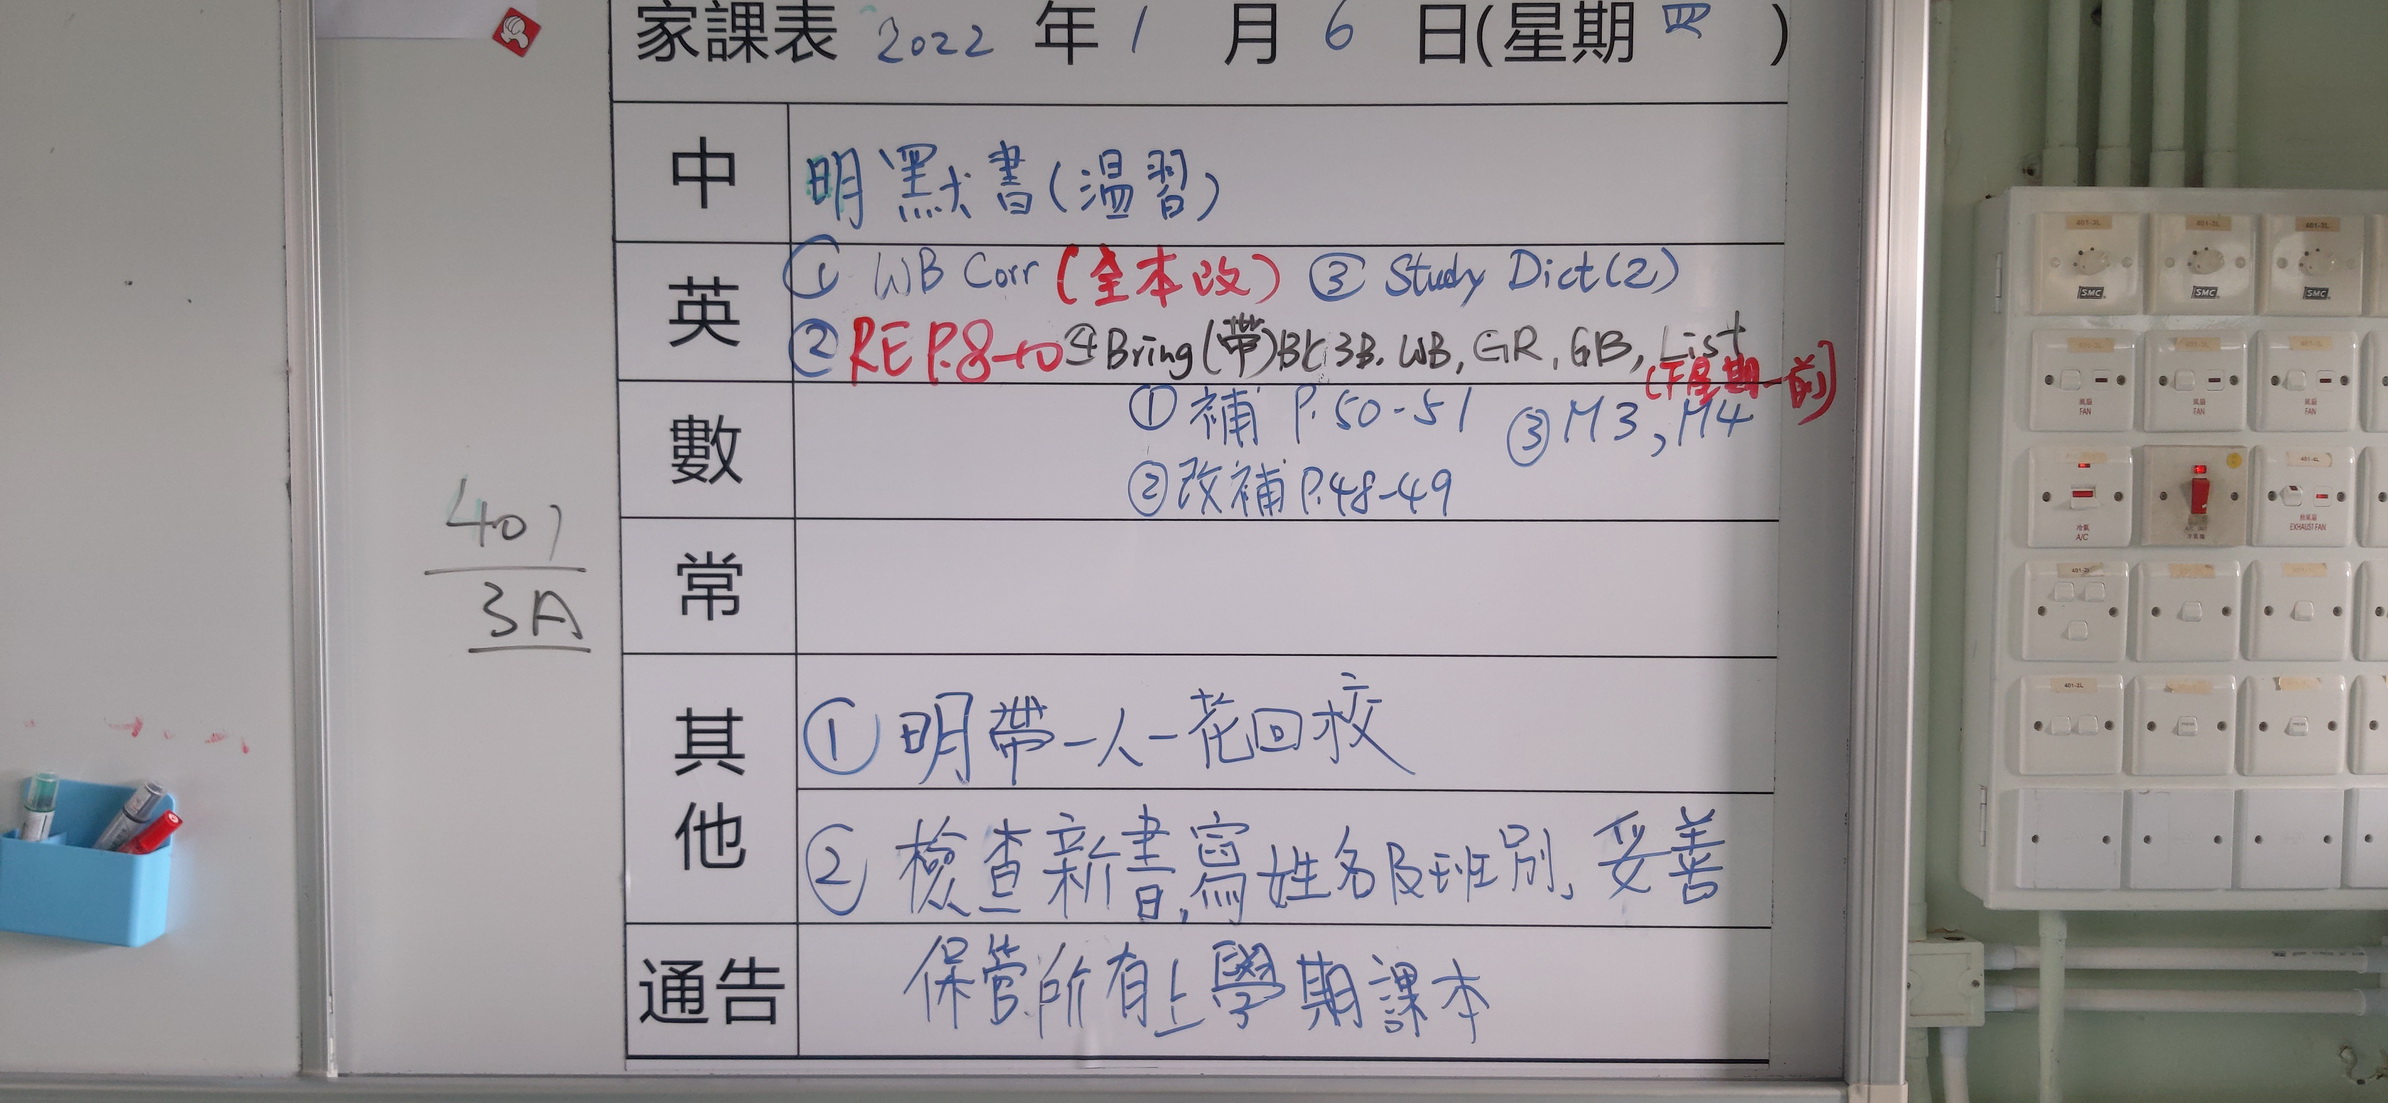 家課表 2022 年 1 月 6 日(星期 四 )
中 明默書(溫習)
英 ① WB Corr (全本改) ③ Study Dict(2)
② RE P.8-10 ④ Bring(帶)BK 3B. WB, GR, GB, List
(下星期一前)
數 ① 補 P.50-51 ③ M3, M4
② 改補 P.48-49
常
其他 ① 明帶一人一花回校
② 檢查新書,寫姓名及班別,妥善
通告 保管所有上學期課本
401
3A
401-3L 401-3L 401-3L
SMC SMC SMC
風扇 FAN 風扇 FAN 風扇 FAN
冷氣 A/C
EXHAUST FAN
401-2L